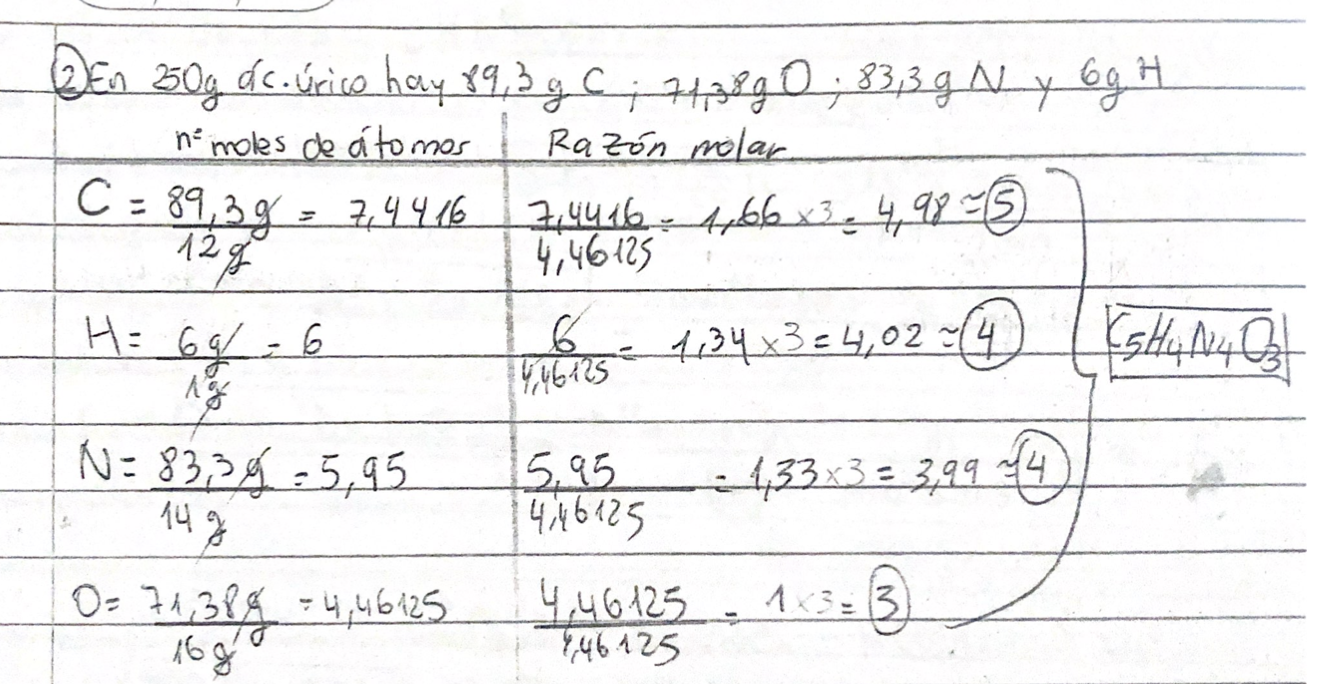 ② En 250g ác. úrico hay 89,3 g C ; 71,38g O ; 83,3 g N y 6g H
nº moles de átomos Razón molar
C = 89,3g/12g = 7,4416 7,4416/4,46125 = 1,66 x3 = 4,98 ≈ 5
H = 6g/1g = 6 6/4,46125 = 1,34 x3 = 4,02 ≈ 4
C5H4N4O3
N = 83,3g/14g = 5,95 5,95/4,46125 = 1,33 x3 = 3,99 ~ 4
O = 71,38g/16g = 4,46125 4,46125/4,46125 = 1 x3 = 3